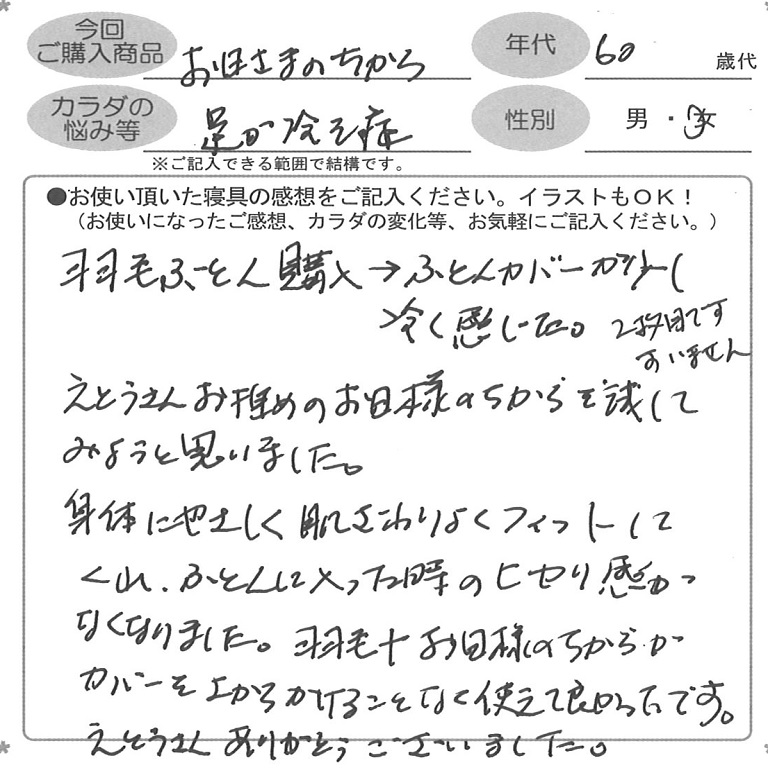 今回
ご購入商品
お日さまのちから
年代
60
歳代
カラダの
悩み等
足が冷え症
性別
男・女
※ご記入できる範囲で結構です。
●お使い頂いた寝具の感想をご記入ください。イラストもOK！
（お使いになったご感想、カラダの変化等、お気軽にご記入ください。）
羽毛ふとん購入→ふとんカバーが少し
冷く感じた。
2枚目です
すいません
えとうさんお推めのお日様のちからを試して
みようと思いました。
身体にやさしく肌ざわりよくフィットして
くれ、ふとんに入った時のヒヤリ感が
なくなりました。羽毛＋お日様のちからが
カバーを上からかけることなく使えて良かったです。
えとうさんありがとうございました。